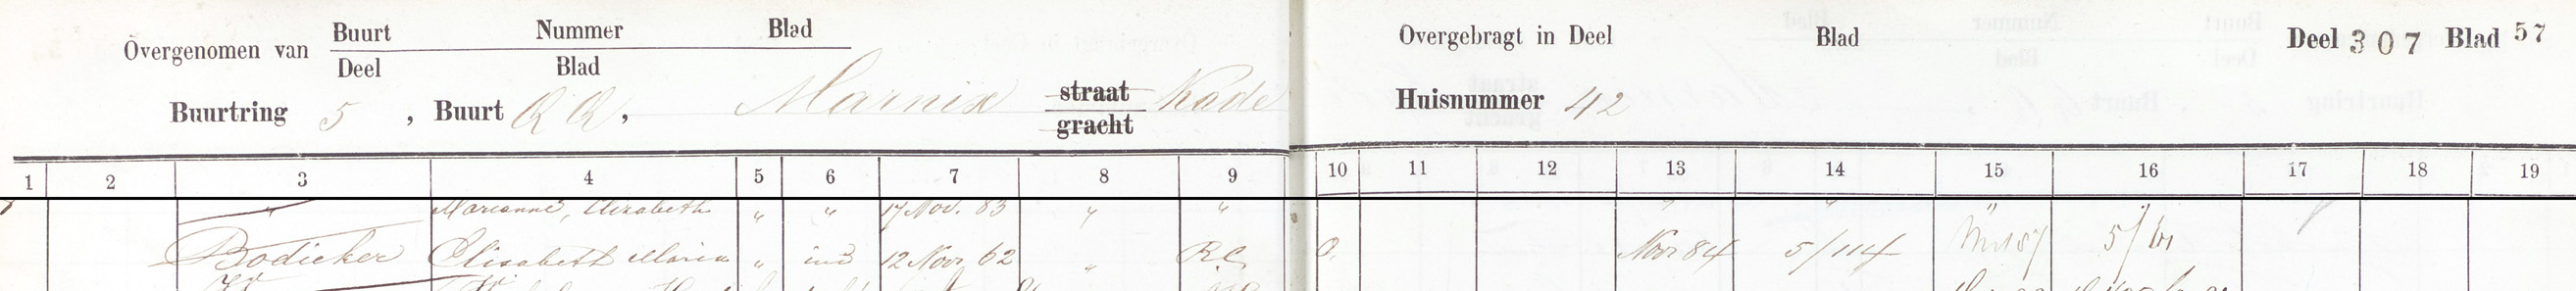 Overgenomen van Buurt Nummer Blad
Deel Blad
Buurtring 5, Buurt QQ, Marnix straat gracht Kade
Overgebragt in Deel Blad Deel 307 Blad 57
Huisnummer 42
1 2 3 4 5 6 7 8 9 10 11 12 13 14 15 16 17 18 19
" Marianne, Elizabeth " " 17 Nov. 83 " " " "
Bödicker Elisabeth Maria " ind 12 Nov. 62 " R.C. O. Nov 84 5/114 5/